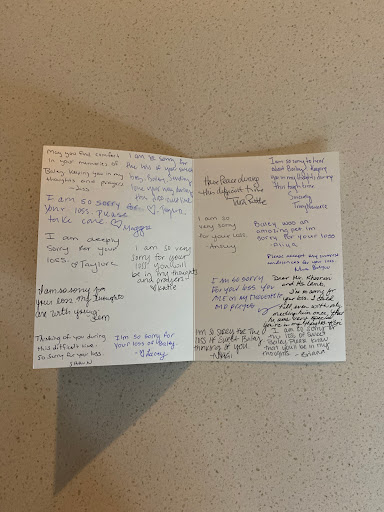 May you find comfort
in your memories of
Bailey. Keeping you in my
thoughts and prayers
-Jess
I am so sorry for
your loss. Please
take care. ♡ Maggie
I am deeply
sorry for your
loss. ♡ Taylore
I am so sorry for
your loss my thoughts
are with you.
Thinking of you during
this difficult time.
So sorry for your loss.
I am so sorry for
the loss of your sweet
boy, Bailey. Sending
love your way during
this
I am so very
sorry for your
loss! You will
be in my thoughts
and prayers
♡ Katie
I'm so sorry for
your loss of Bailey.
Have Peace during
this difficult time
I am so
very sorry
for your loss.
I am so sorry
for your loss you
are in my thoughts
I'm so sorry for the
loss of sweet Bailey
thinking of you
I am so sorry to hear
about Bailey. Keeping
you in my thoughts during
this tough time
Sincerely
Bailey was an
amazing pet. I'm
sorry for your loss
Please accept my sincerest
condolences for your loss
Dear Mr.
and Ms.
I'm so sorry for
your loss. I think
meeting him once, that
he was very special
You're in my thoughts
I am so sorry for
the loss of sweet
Bailey. Please know
that you'll be in my
thoughts